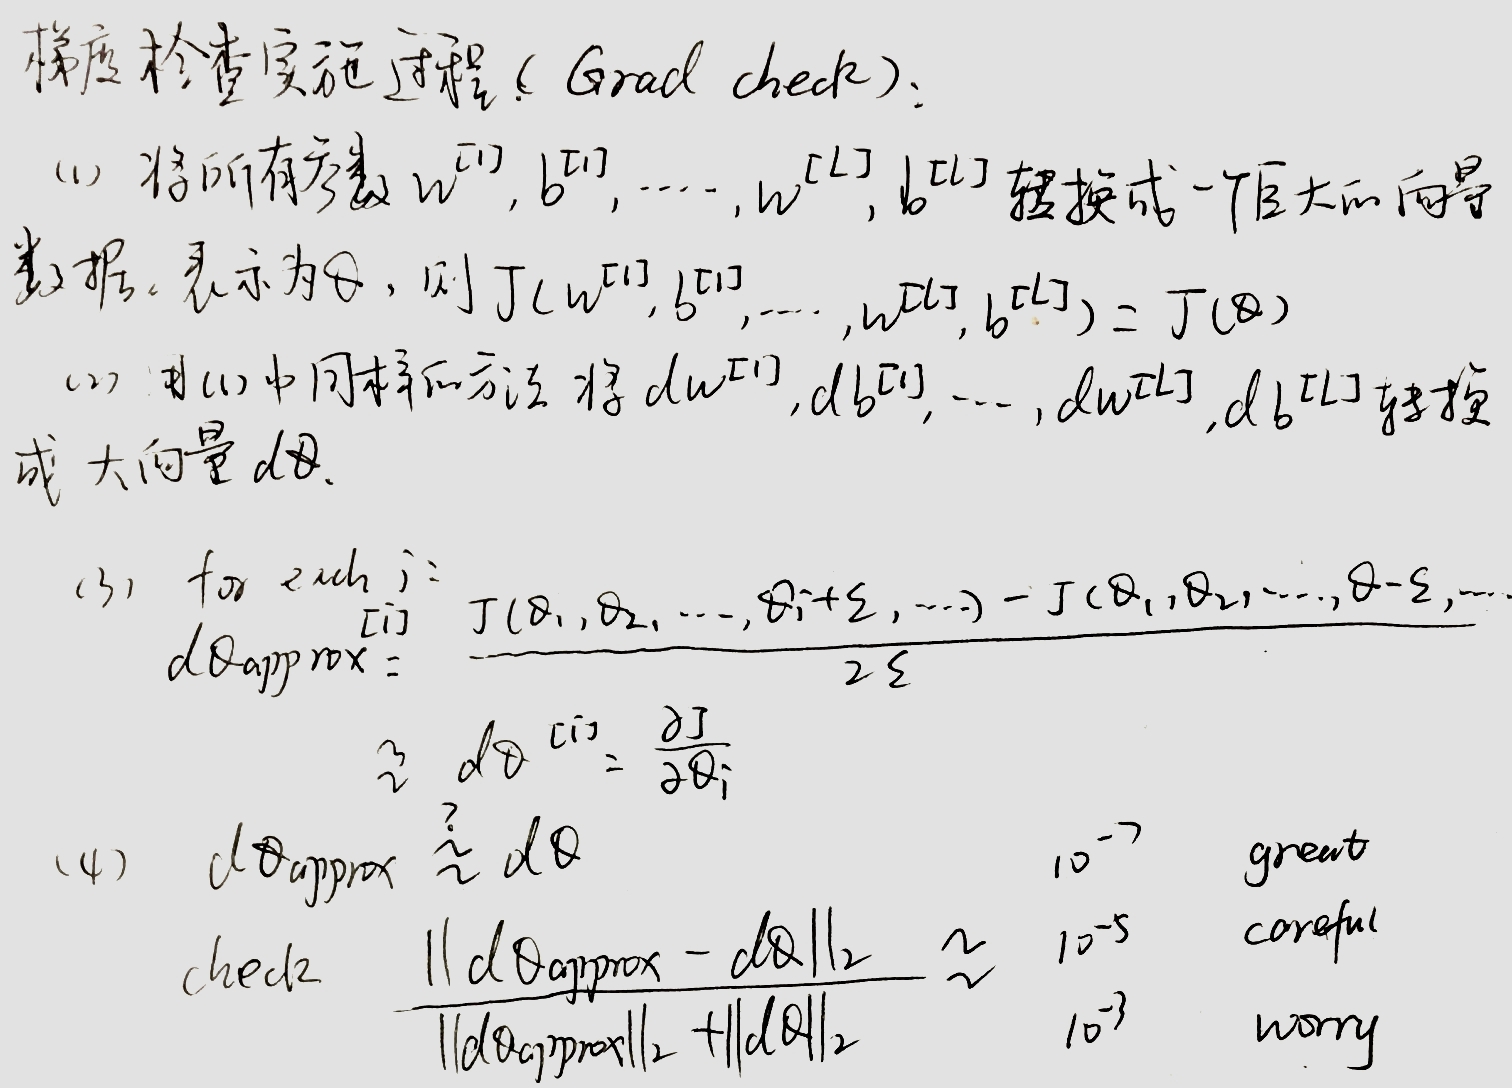 梯度检查实施过程(Grad check):
(1) 将所有参数 w^[1], b^[1], ...., w^[L], b^[L] 转换成一个巨大的向量
数据,表示为θ,则 J(w^[1], b^[1], ...., w^[L], b^[L]) = J(θ)
(2) 用(1)中同样的方法将 dw^[1], db^[1], ..., dw^[L], db^[L] 转换
成大向量 dθ.
(3) for each i:
dθapprox^[i] = (J(θ₁, θ₂, ..., θᵢ+ε, ...) - J(θ₁, θ₂, ...., θ-ε, ...)) / 2ε
≈ dθ^[i] = ∂J/∂θᵢ
(4) dθapprox ≈? dθ
check ||dθapprox - dθ||₂ / (||dθapprox||₂ + ||dθ||₂) ≈
10⁻⁷ great
10⁻⁵ careful
10⁻³ worry